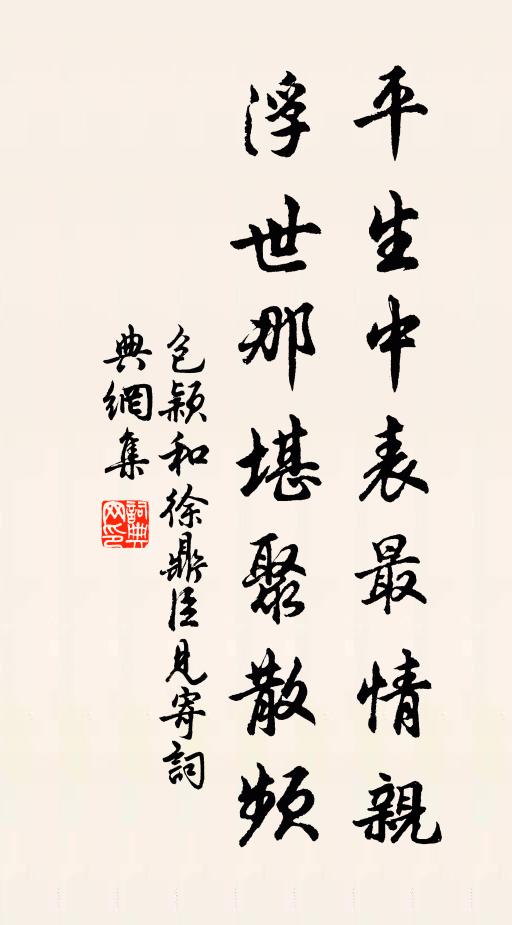 平生中表最情親
浮世那堪聚散頻
包穎和徐鼎臣見寄詞
典網集
詞典网印